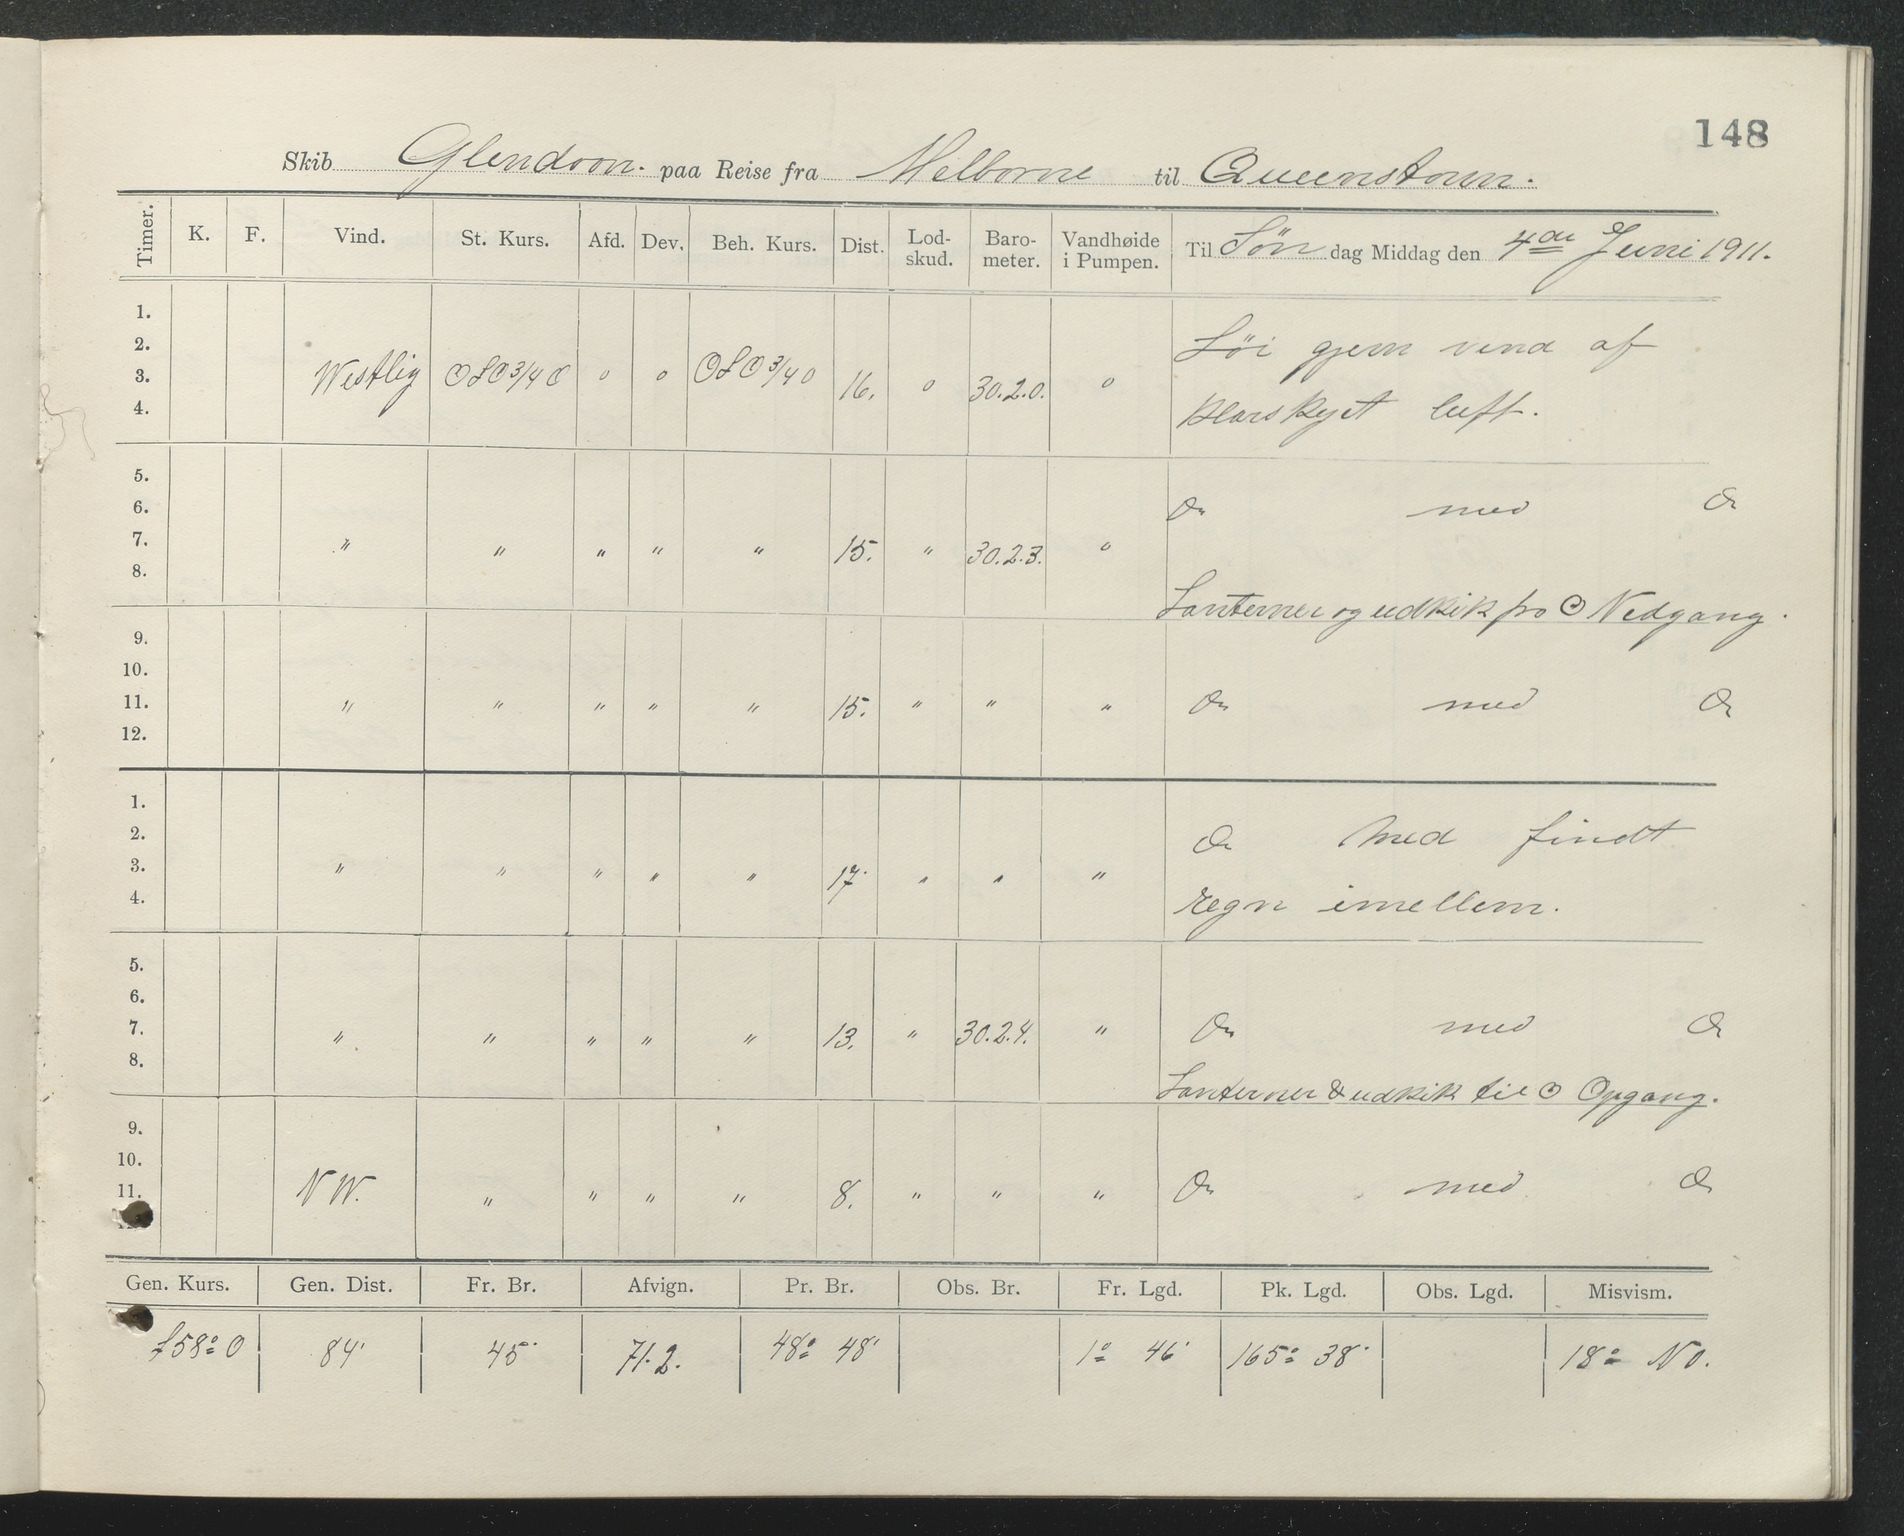 148
Skib Glendoon. paa Reise fra Melborne til Queenstown.
Timer. K. F. Vind. St. Kurs. Afd. Dev. Beh. Kurs. Dist. Lod-skud. Baro-meter. Vandhøide i Pumpen. Til Søn dag Middag den 4de Juni 1911.
1.
2. Løi gjem vind af
3. Westlig OSO 3/4 O o o OSO 3/4 O 16. o 30.2.0. o
4. Klarskyet luft.
5.
6. Do med Do
7. " " " " " 15. " 30.2.3. o
8.
Lanterner og udkik fra ☉ Nedgang.
9.
10.
11. " " " " " 15. " " " Do med Do
12.
1.
2. Do med findt
3. " " " " " 17. " " "
4. regn imellem.
5.
6.
7. " " " " " 13. " 30.2.4. " Do med Do
8.
Lanterner & udkik til ☉ Opgang.
9.
10.
11. NW. " " " " 8. " " " Do med Do
Gen. Kurs. Gen. Dist. Fr. Br. Afvign. Pr. Br. Obs. Br. Fr. Lgd. Pk. Lgd. Obs. Lgd. Misvism.
S58° O 84' 45' 71.2. 48° 48' 1° 46' 165° 38' 18° NO.